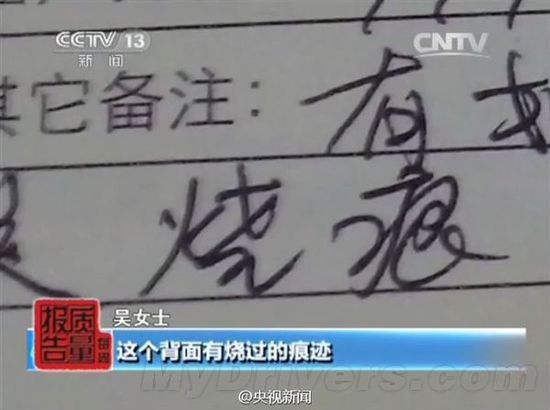 CCTV 13
新闻
CNTV
其它备注：有
烧痕
质量
报告
每周
吴女士
这个背面有烧过的痕迹
MyDrivers.com
@央视新闻